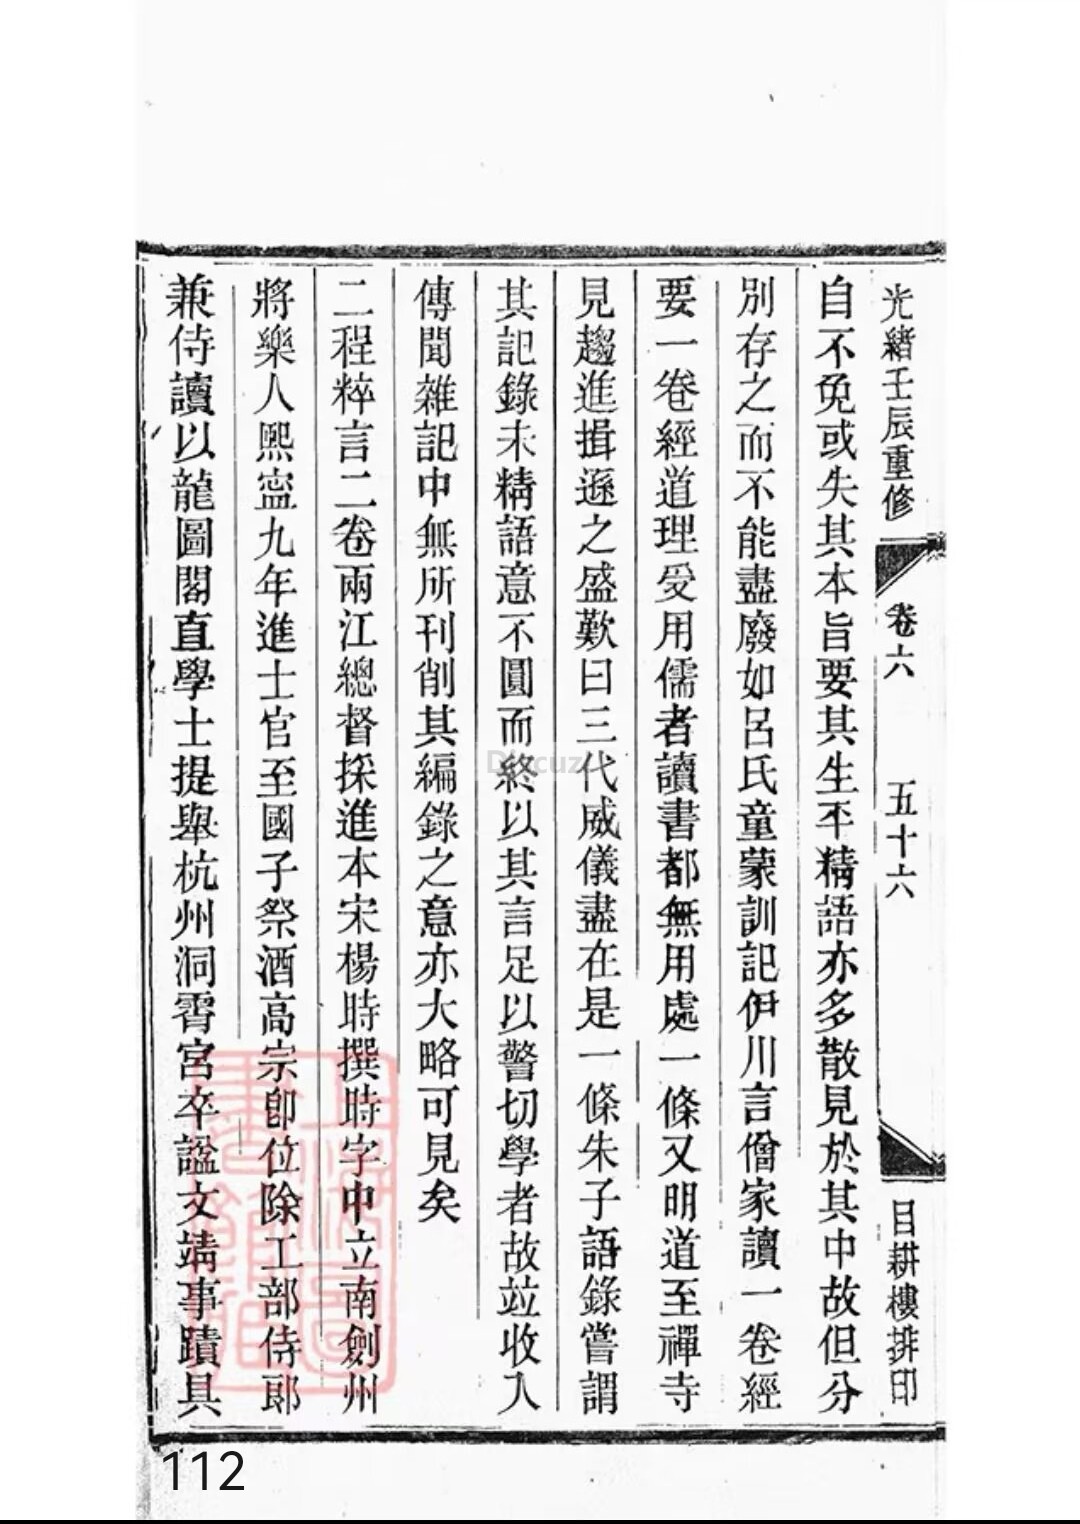 光緒壬辰重修 卷六 五十六 目耕樓排印
自不免或失其本旨要其生平精語亦多散見於其中故但分
別存之而不能盡廢如呂氏童蒙訓記伊川言僧家讀一卷經
要一卷經道理受用儒者讀書都無用處一條又明道至禪寺
見趨進揖遜之盛歎曰三代威儀盡在是一條朱子語錄嘗謂
其記錄未精語意不圓而終以其言足以警切學者故竝收入
傳聞雜記中無所刊削其編錄之意亦大略可見矣
二程粹言二卷兩江總督採進本宋楊時撰時字中立南劍州
將樂人熙寍九年進士官至國子祭酒高宗卽位除工部侍郎
兼侍讀以龍圖閣直學士提舉杭州洞霄宮卒諡文靖事蹟具
上海圖書館藏
Discuz
112